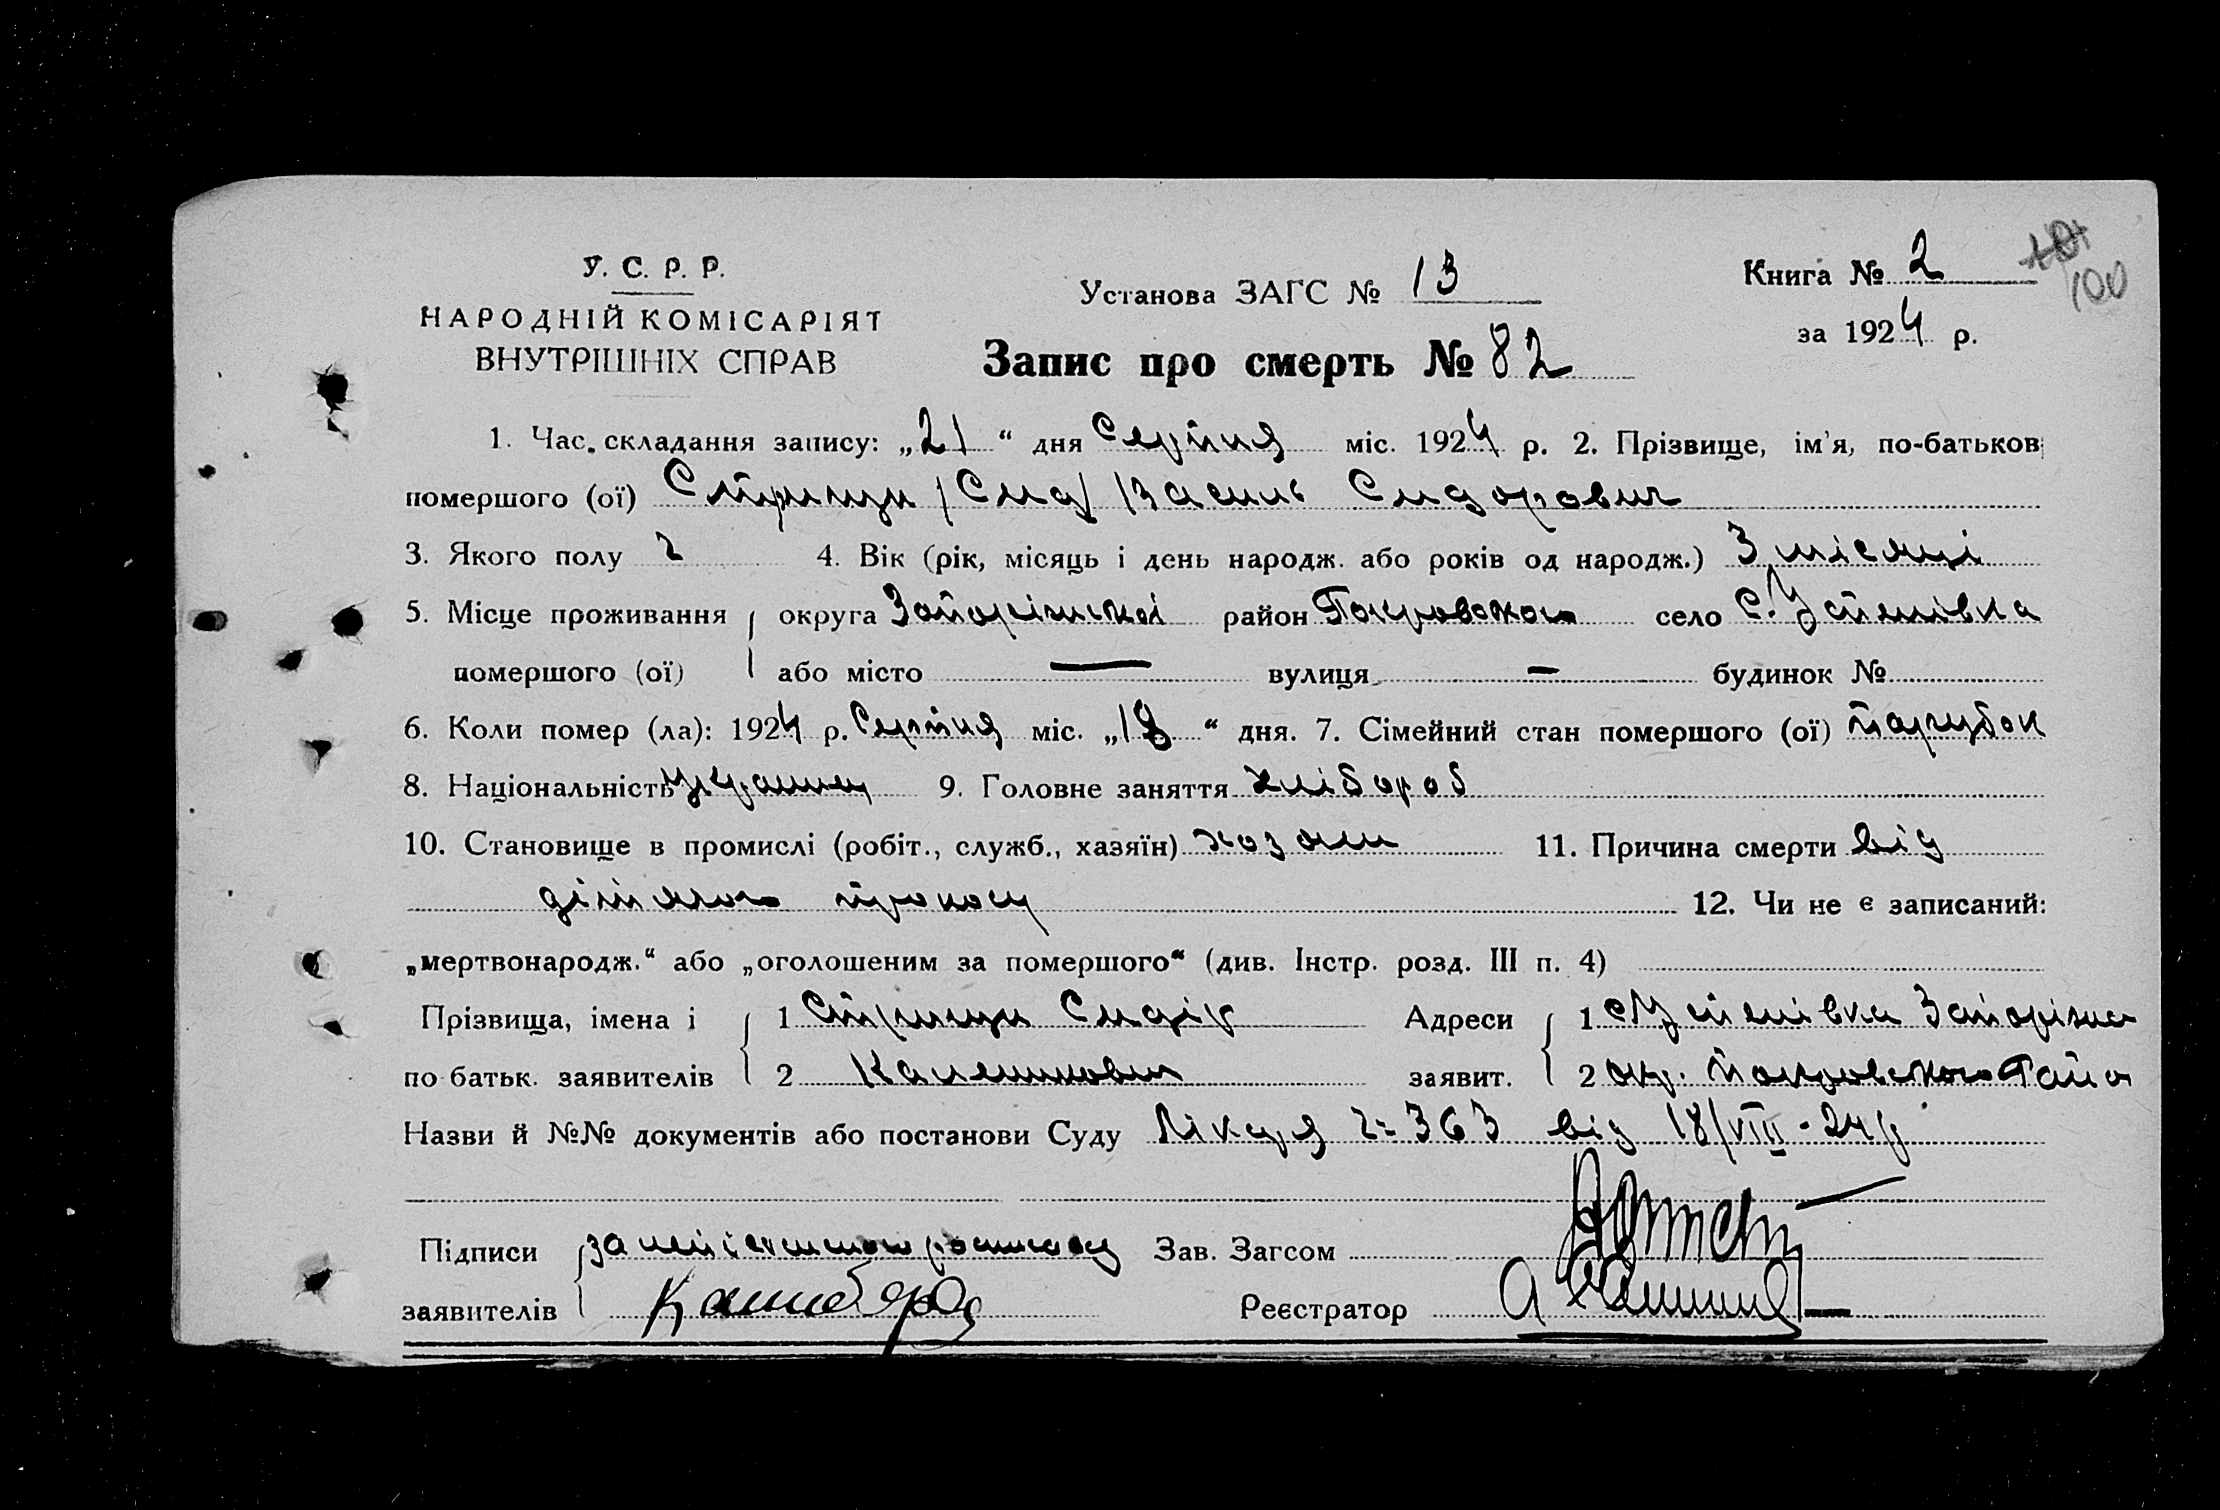 У. С. Р. Р.
НАРОДНІЙ КОМІСАРІЯТ
ВНУТРІШНІХ СПРАВ
Установа ЗАГС № 13
Книга № 2
100
за 1924 р.
Запис про смерть № 82
1. Час складання запису: „21“ дня Серпня міс. 1924 р. 2. Прізвище, ім'я, по-батькові
помершого (ої) Стрипди /Сид/ Василь Сидорович
3. Якого полу ч 4. Вік (рік, місяць і день народж. або років од народж.) 3 місяці
5. Місце проживання округа Запоріжської район Покровського село с. Успенівка
помершого (ої) або місто — вулиця — будинок №
6. Коли помер (ла): 1924 р. Серпня міс. „18“ дня. 7. Сімейний стан помершого (ої) парубок
8. Національність 9. Головне заняття хлібороб
10. Становище в промислі (робіт., служб., хазяїн) хозяин 11. Причина смерти від
дітячого поносу 12. Чи не є записаний:
„мертвонародж.“ або „оголошеним за помершого“ (див. Інстр. розд. III п. 4)
Прізвища, імена і 1 Сидір Адреси 1 с. Успенівка Запорізка
по батьк. заявителів 2 заявит. 2 окр. Покровського Райо
Назви й №№ документів або постанови Суду Лікаря ч= 363 від 18/VIII-24 р
Підписи за Зав. Загсом
заявителів Реєстратор